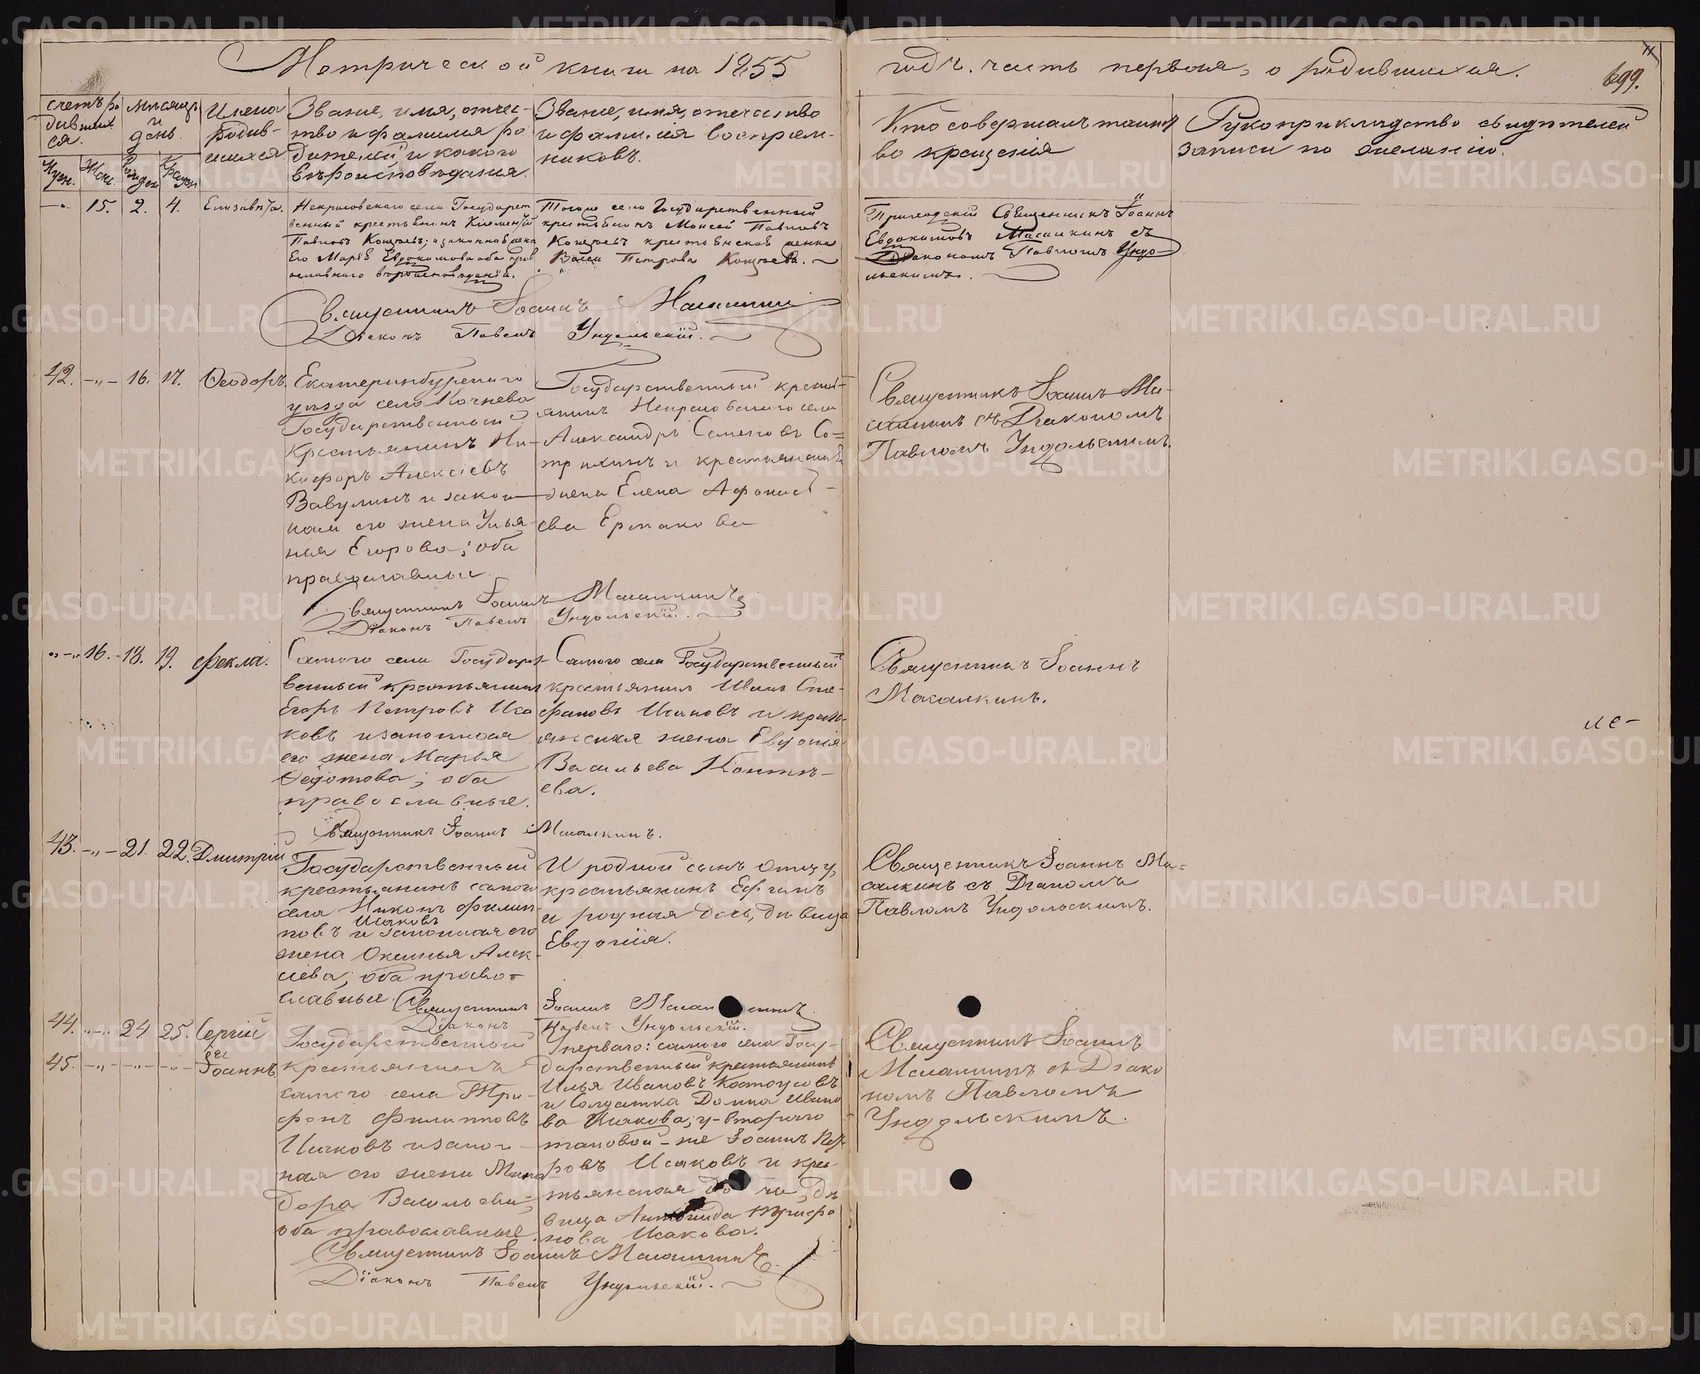 Метрической книги на 1855
годъ. часть первая, о родившихся.
11
699.
счетъ ро
дившихся
ся.
Муж.
Жен.
Мѣсяцъ
и
день.
Рожден
Крещен
Имена
Родив-
шихся
Званіе, имя, отчес-
тво и фамилія ро
дителей и какого
вѣроисповѣданія.
Званіе, имя, отечество
и фамилія воспріем-
никовъ.
Кто совершалъ таинст
во крещенія
Рукоприкладство свидѣтелей
записи по желанію.
15. 2. 4. Елизавѣта.
Некрасовскаго села Государст
венный крестьянинъ
Павловъ Кощеевъ; и законная жена
Его Марѳа Евдокимова оба прав
ославнаго вѣроисповѣданія.
Тогоже села Государственный
крестьянинъ Моисей Павловъ
Кощеевъ крестьянская женка
Васса Петрова Кощеева.
Приходскій Священникъ Іоаннъ
Евдокимовъ Масалкинъ съ
Діакономъ Павломъ Ундо
льскимъ.
Священникъ Іоаннъ Масалкинъ
Діаконъ Павелъ Ундольскій.
42. -„- 16. 17. Ѳеодоръ.
Екатеринбургскаго
уѣзда села Кочнева
Государственный
Крестьянинъ Ни-
кифоръ Алексѣевъ
Вавулинъ и закон
ная его жена Улья
ная Егорова; оба
православныи.
Государственный крестья-
янинъ Некрасовскаго села
Александръ Семеновъ Со=
трихинъ и крестьянская
жена Елена Афонась-
ева Ермакова
Священникъ Іоаннъ Ма-
салкинъ съ Діакономъ
Павломъ Ундольскимъ.
Священникъ Іоаннъ Масалкинъ
Діаконъ Павелъ Ундольскій.
„-„ 16. 18. 19. Фекла.
Самого села Государст
венный крестьянинъ
Егоръ Петровъ Иса
ковъ и законная
его жена Марья
Ѳедотова; оба
православные.
Самого села Государственный
крестьянинъ Иванъ Сте-
фановъ Исаковъ и крест-
янская жена Евдокія
Васильева Контѣ-
ева.
Священникъ Іоаннъ
Масалкинъ.
не-
Священникъ Іоаннъ Масалкинъ.
43. -„- 21. 22. Дмитрій
Государственный
крестьянинъ самого
села Никонъ Филип
Исаковъ
повъ и законная его
жена Оксинья Алек
сѣева; оба право=
славные.
И родной сынъ отцу,
крестьянинъ Ефимъ
и родная дочь, дѣвица
Евдокія.
Священникъ Іоаннъ Ма=
салкинъ съ Діакономъ
Павломъ Ундольскимъ.
Священникъ Іоаннъ Масалкинъ.
Діаконъ Павелъ Ундольскій.
44. „-„ 24 25. Сергій
45. -„- -„- -„- Іоаннъ
Государственный
крестьянинъ
самого села Три-
фонъ Филипповъ
Исаковъ и закон-
ная его жена Мино
дора Васильева;
оба православные.
У перваго: самого села Госу-
дарственный крестьянинъ
Илья Ивановъ Костоусовъ
и Солдатка Домна Ивано
ва Исакова; у-втораго
таковой-же Іоаннъ Пет
ровъ Исаковъ и крес-
тьянская дочь, дѣ
вица Антонида Трифо
нова Исакова.
Священникъ Іоаннъ
Масалкинъ съ Діако
номъ Павломъ
Ундольскимъ.
Священникъ Іоаннъ Масалкинъ.
Діаконъ Павелъ Ундольскій.
METRIKI.GASO-URAL.RU